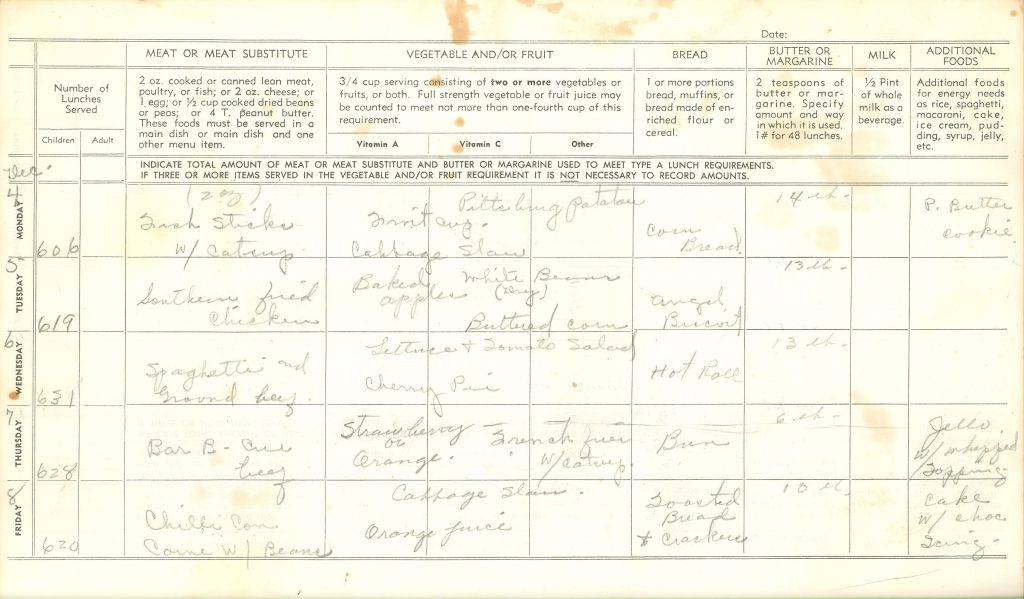 Date:
MEAT OR MEAT SUBSTITUTE
VEGETABLE AND/OR FRUIT
BREAD
BUTTER OR
MARGARINE
MILK
ADDITIONAL
FOODS
Number of
Lunches
Served
Children
Adult
2 oz. cooked or canned lean meat,
poultry, or fish; or 2 oz. cheese; or
1 egg; or ½ cup cooked dried beans
or peas; or 4 T. peanut butter.
These foods must be served in a
main dish or main dish and one
other menu item.
3/4 cup serving consisting of two or more vegetables or
fruits, or both. Full strength vegetable or fruit juice may
be counted to meet not more than one-fourth cup of this
requirement.
Vitamin A
Vitamin C
Other
1 or more portions
bread, muffins, or
bread made of en-
riched flour or
cereal.
2 teaspoons of
butter or mar-
garine. Specify
amount and way
in which it is used.
1# for 48 lunches.
½ Pint
of whole
milk as a
beverage.
Additional foods
for energy needs
as rice, spaghetti,
macaroni, cake,
ice cream, pud-
ding, syrup, jelly,
etc.
INDICATE TOTAL AMOUNT OF MEAT OR MEAT SUBSTITUTE AND BUTTER OR MARGARINE USED TO MEET TYPE A LUNCH REQUIREMENTS.
IF THREE OR MORE ITEMS SERVED IN THE VEGETABLE AND/OR FRUIT REQUIREMENT IT IS NOT NECESSARY TO RECORD AMOUNTS.
Dec.
4
MONDAY
606
(2 oz)
Fish Sticks
w/ catsup
Fruit cup.
Pittsburg potatoes
Cabbage Slaw
Corn
Bread
14 lb-
P. Butter
cookie
5
TUESDAY
619
Southern fried
chicken
Baked
apples
White Beans
(Dry)
Buttered corn
Angel
Biscuit
13 lb-
6
WEDNESDAY
631
Spaghetti and
Ground beef
Lettuce + Tomato Salad
Cherry Pie
Hot Roll
13 lb-
7
THURSDAY
628
Bar B- Cue
beef
Strawberry
or
Orange.
French fries
w/catsup
Bun
6 lb-
Jello.
w/whipped
Topping-
8
FRIDAY
620
Chilli Con
Carne w/ Beans
Cabbage Slaw.
Orange Juice
Toasted
Bread
+ Crackers
13 lb-
Cake
w/ choc
Icing-